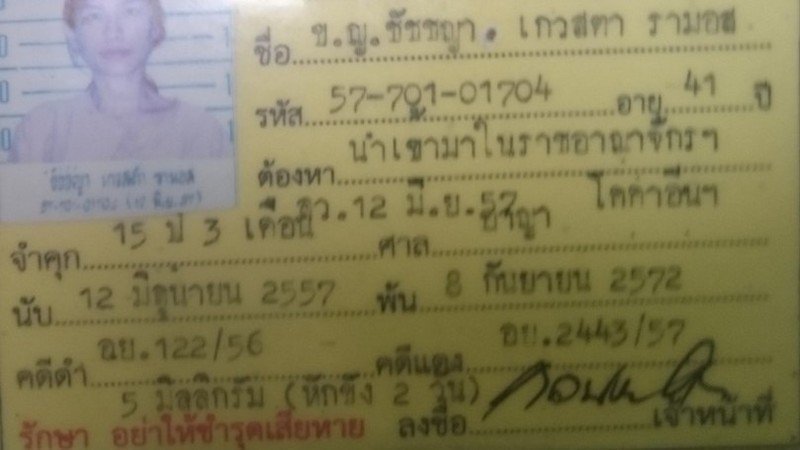 ชื่อ ข.ญ.ชัชชญา. เกวสตา รามอส
รหัส 57-701-01704 อายุ 41 ปี
ต้องหา นำเขามาในราชอาญาจักรฯ
คว.12 มิ.ย.57 โคคาอีนฯ
จำคุก 15 ปี 3 เดือน ศาล อาญา
นับ 12 มิถุนายน 2557 พ้น 8 กันยายน 2572
คดีดำ อย.122/56 คดีแดง อย.2443/57
5 มิลลิกรัม (หักขัง 2 วัน)
รักษา อย่าให้ชำรุดเสียหาย ลงชื่อ เจ้าหน้าที่